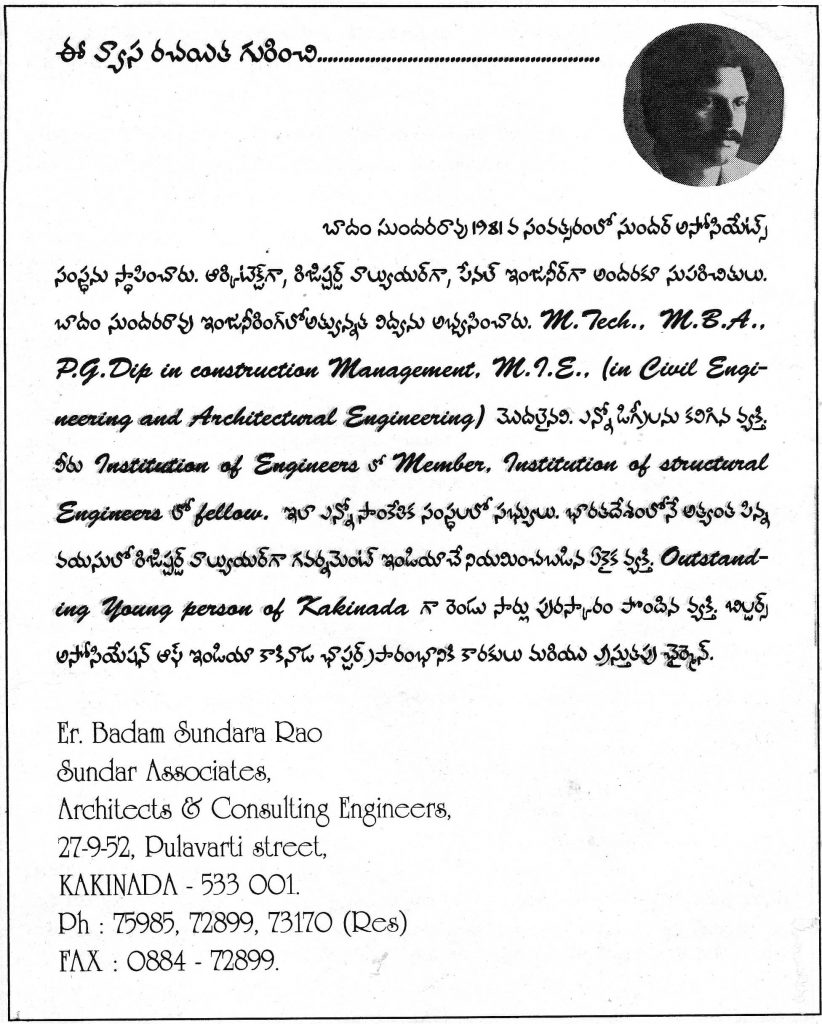 ఈ వ్యాస రచయిత గురించి.......................................................
బాదం సుందరరావు 1981 వ సంవత్సరంలో సుందర్ అసోసియేట్స్
సంస్థను స్థాపించారు. ఆర్కిటెక్ట్‌గా, రిజిష్టర్డ్ వాల్యుయర్‌గా, పేనల్ ఇంజనీర్‌గా అందరకూ సుపరిచితులు.
బాదం సుందరరావు ఇంజనీరింగ్‌లో అత్యున్నత విద్యను అభ్యసించారు. M.Tech., M.B.A.,
P.G.Dip in construction Management, M.I.E., (in Civil Engi-
neering and Architectural Engineering) మొదలైనవి. ఎన్నో డిగ్రీలను కలిగిన వ్యక్తి.
వీరు Institution of Engineers లో Member, Institution of structural
Engineers లో fellow. ఇలా ఎన్నో సాంకేతిక సంస్థలలో సభ్యులు. భారతదేశంలోనే అత్యంత పిన్న
వయసులో రిజిష్టర్డ్ వాల్యుయర్‌గా గవర్నమెంట్ ఇండియాచే నియమించబడిన ఏకైక వ్యక్తి. Outstand-
ing Young person of Kakinada గా రెండు సార్లు పురస్కారం పొందిన వ్యక్తి. బిల్డర్స్
అసోసియేషన్ ఆఫ్ ఇండియా కాకినాడ ఛాప్టర్ ప్రారంభానికి కారకులు మరియు ప్రస్తుతపు ఛైర్మెన్.
Er. Badam Sundara Rao
Sundar Associates,
Architects & Consulting Engineers,
27-9-52, Pulavarti street,
KAKINADA - 533 001.
Ph : 75985, 72899, 73170 (Res)
FAX : 0884 - 72899.